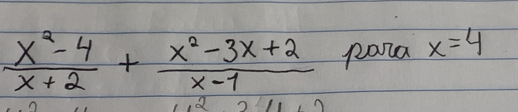 x² - 4 / x + 2 + x² - 3x + 2 / x - 1 para x = 4